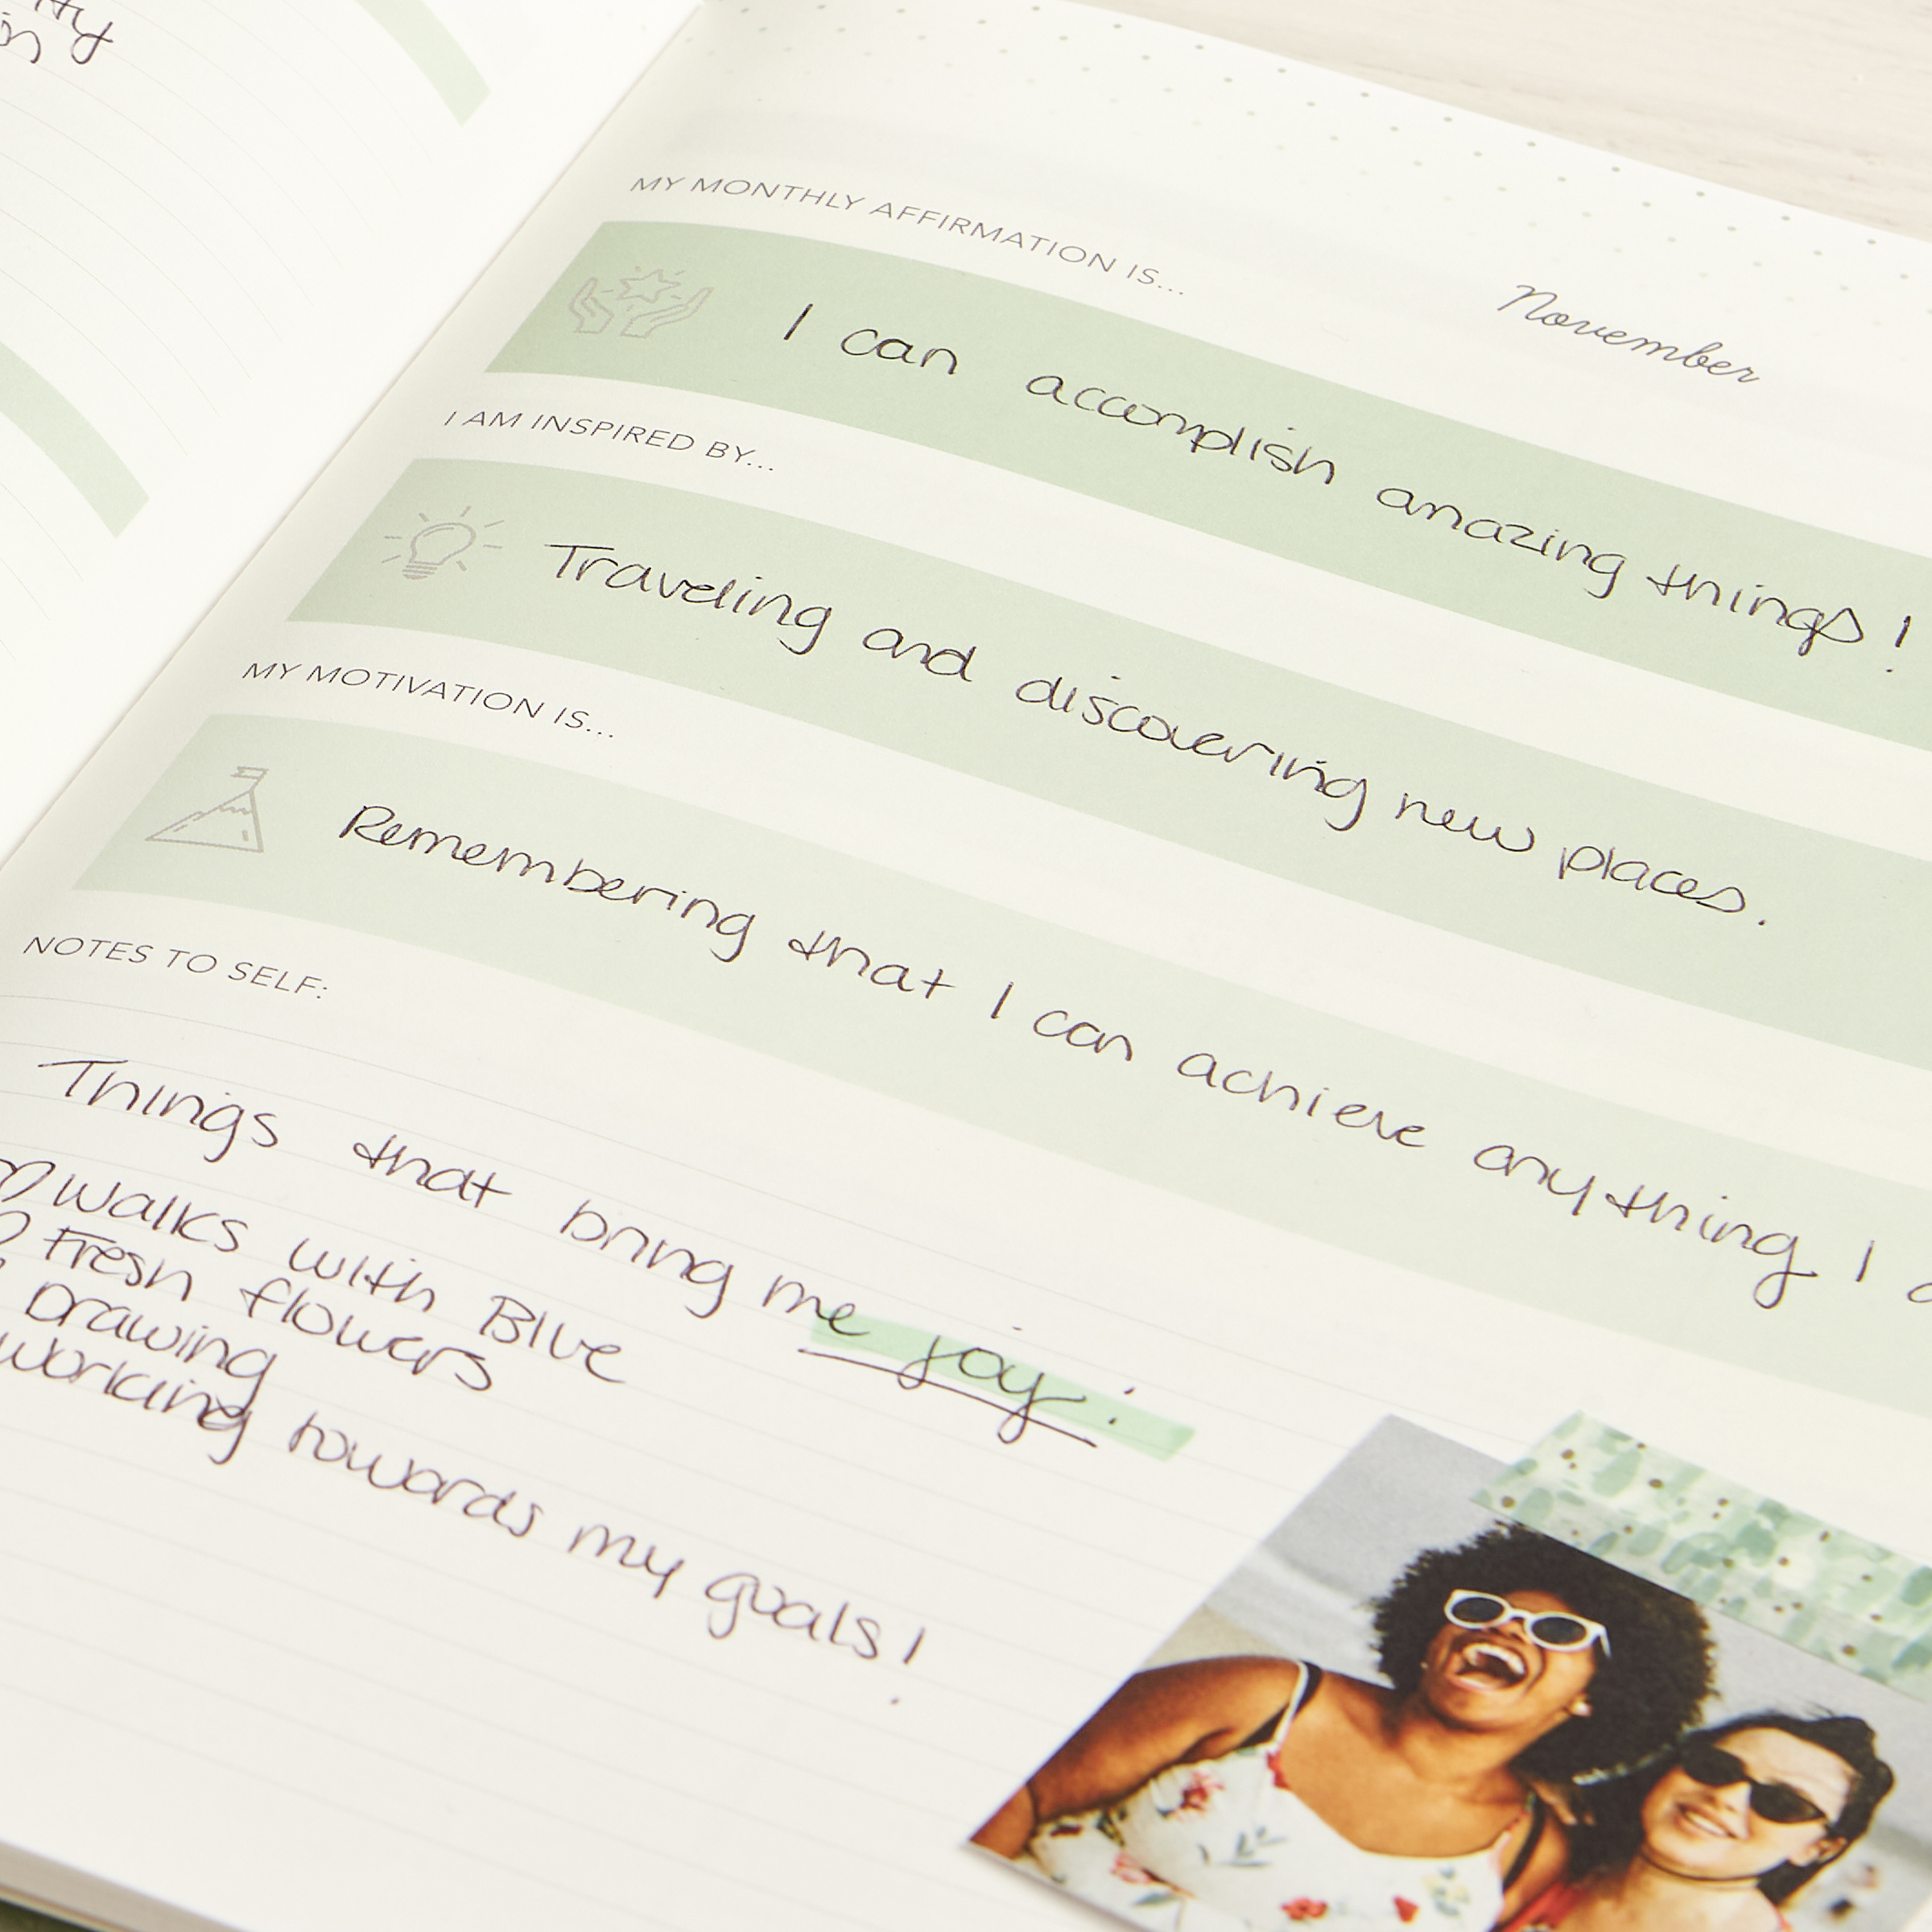 MY MONTHLY AFFIRMATION IS...
November
I can accomplish amazing things!
I AM INSPIRED BY...
Traveling and discovering new places.
MY MOTIVATION IS...
Remembering that I can achieve anything I
NOTES TO SELF:
Things that bring me joy:
Walks with Blue
Fresh flowers
Drawing
Working towards my goals!